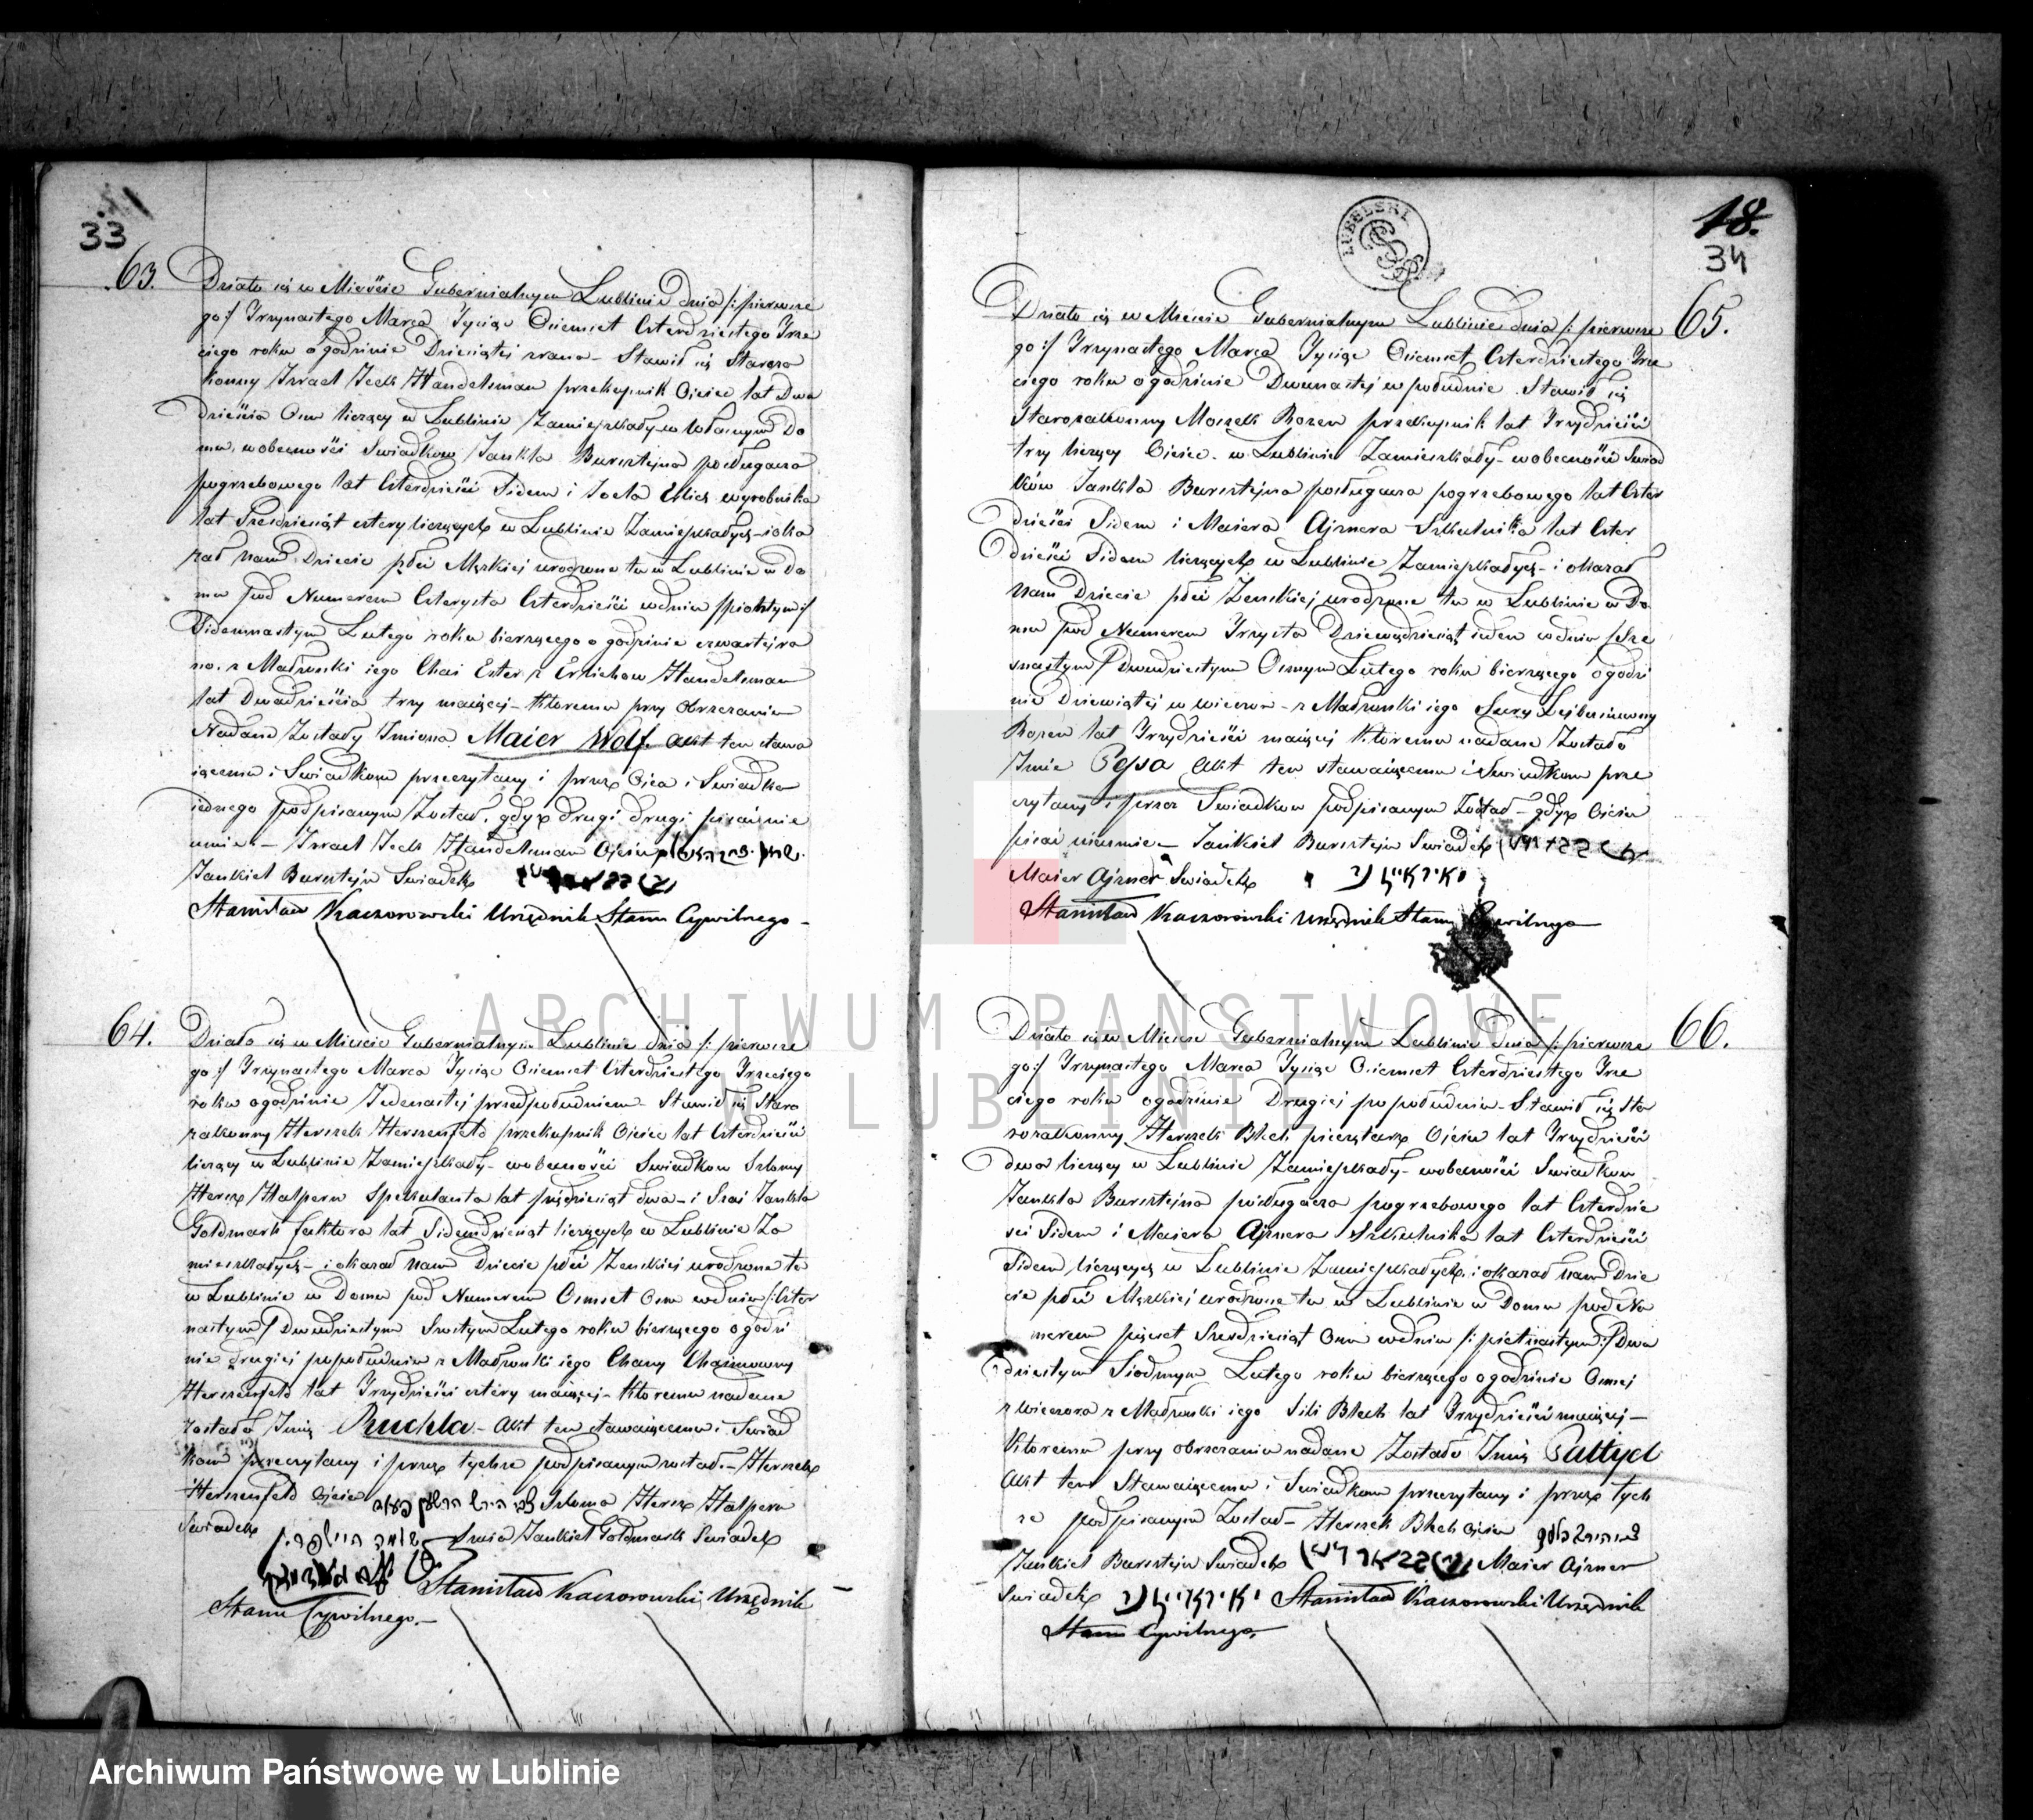 33
63.
Działo się w Mieście Gubernialnym Lublinie dnia /: pierwsze
go :/ Trzynastego Marca Tysiąc Ośmset Czterdziestego Trze
ciego roku o godzinie Dziesiątej zrana – Stawił się Staroza
konny Izrael Icek Handelsman przekupnik Ojciec lat Dwa
dzieścia Osm liczący w Lublinie Zamieszkały w własnym Do
mu, w obecności Swiadkow Jankla Bursztejna posługacza
pogrzebowego lat Czterdzieści Siedem i Joela wyrobnika
lat Sześćdziesiąt cztery liczących w Lublinie Zamieszkałych – i oka
zał Nam Dziecie płci Męzkiej urodzone tu w Lublinie w Do
mu pod Numerem Czterysta Czterdzieści w dniu /: piątym :/
Siedemnastym Lutego roku bierzącego o godzinie czwartej ra
no. z Małżonki jego Chai Ester z Erlichow Handelsman
lat Dwadzieścia trzy mającej – Któremu przy Obrzezaniu
Nadane Zostały Imiona Maier Wolf. Akt ten stawa
jącemu i Swiadkom przeczytany i przez Ojca i Swiadka
jednego podpisanym Został, gdyż drugi drugi pisać nie
umie – Izrael Icek Handelsman Ojciec
Jankiel Bursztejn Swiadek
Stanisław Kaczorowski Urzędnik Stanu Cywilnego –
64.
Działo się w Mieście Gubernialnym Lublinie dnia /: pierwsze
go :/ Trzynastego Marca Tysiąc Ośmset Czterdziestego Trzeciego
roku o godzinie Jedenastej przedpołudniem – Stawił się Staro
zakonny Herszek Herszenfeld przekupnik Ojciec lat Czterdzieści
liczący w Lublinie Zamieszkały – w obecności Swiadkow Szlomy
Hersz Halpern Spekulanta lat pięćdziesiąt dwa – i Srai Jankla
Goldmark faktora lat Siedemdziesiąt liczących w Lublinie Za
mieszkałych – i okazał Nam Dziecie płci Zenskiej urodzone tu
w Lublinie w Domu pod Numerem Osmset Osm w dniu /: Czter
nastym :/ Dwudziestym Szostym Lutego roku bierzącego o godzi
nie drugiej popołudniu z Małżonki jego Chany Chaimowny
Herszenfeld lat Trzydzieści cztery mającej – Któremu nadane
zostało Imię Ruchla – Akt ten stawającemu i Swiad
kom przeczytany i przez tychże podpisanym został. – Herszek
Herszenfeld Ojciec Szloma Hersz Halpern
Swiadek Sraia Jankiel Goldmark Swiadek
Stanisław Kaczorowski Urzędnik
Stanu Cywilnego. –
LUBELSKI
18.
34
65.
Działo się w Mieście Gubernialnym Lublinie dnia /: pierwsze
go :/ Trzynastego Marca Tysiąc Ośmset Czterdziestego Trze
ciego roku o godzinie Dwunastej w południe Stawił się
Starozakonny Moszek Rozen przekupnik lat Trzydzieści
trzy liczący Ojciec. w Lublinie Zamieszkały – w obecności Swiad
ków Jankla Bursztejna posługacza pogrzebowego lat Czter
dzieści Siedem i Maiera Ajznera Szkolnika lat Czter
dzieści Siedem liczących w Lublinie Zamieszkałych – i okazał
Nam Dziecie płci Zenskiej urodzone tu w Lublinie w Do
mu pod Numerem Trzysta Dziewięćdziesiąt jeden w dniu /: Sze
snastym :/ Dwudziestym Osmym Lutego roku bierzącego o godzi
nie Dziewiątej w wieczor – z Małżonki jego Sury Lejbusiowny
Rozen lat Trzydzieści mającej Któremu nadane Zostało
Imie Pesa Akt ten stawającemu i Swiadkom prze
czytany i przez Swiadkow podpisanym Został – gdyż Ojciec
pisać nieumie – Jankiel Bursztejn Swiadek
Maier Ajzner Swiadek
Stanisław Kaczorowski Urzędnik Stanu Cywilnego
66.
Działo się w Mieście Gubernialnym Lublinie dnia /: pierwsze
go :/ Trzynastego Marca Tysiąc Ośmset Czterdziestego Trze
ciego roku o godzinie Drugiej popołudniu – Stawił się Sta
rozakonny Herszek Blech pieczętarz Ojciec lat Trzydzieści
dwa liczący w Lublinie Zamieszkały – w obecności Swiadkow
Jankla Bursztejna posługacza pogrzebowego lat Czterdzie
ści Siedem i Maiera Ajznera Szkolnika lat Czterdzieści
Siedem liczących w Lublinie Zamieszkałych. i okazał Nam Dzie
cie płci Męzkiej urodzone tu w Lublinie w Domu pod Nu
merem pięćset Sześćdziesiąt Osm w dniu /: pietnastym :/ Dwu
dziestym Siodmym Lutego roku bierzącego o godzinie Osmej
z wieczora z Małżonki jego Blech lat Trzydzieści mającej –
Któremu przy obrzezaniu nadane Zostało Imię Paltyel
Akt ten Stawającemu i Swiadkom przeczytany i przez tych
że podpisanym Został – Herszek Blech Ojciec
Jankiel Bursztejn Swiadek Maier Ajzner
Swiadek Stanisław Kaczorowski Urzędnik
Stanu Cywilnego.
ARCHIWUM PAŃSTWOWE
W LUBLINIE
Archiwum Państwowe w Lublinie